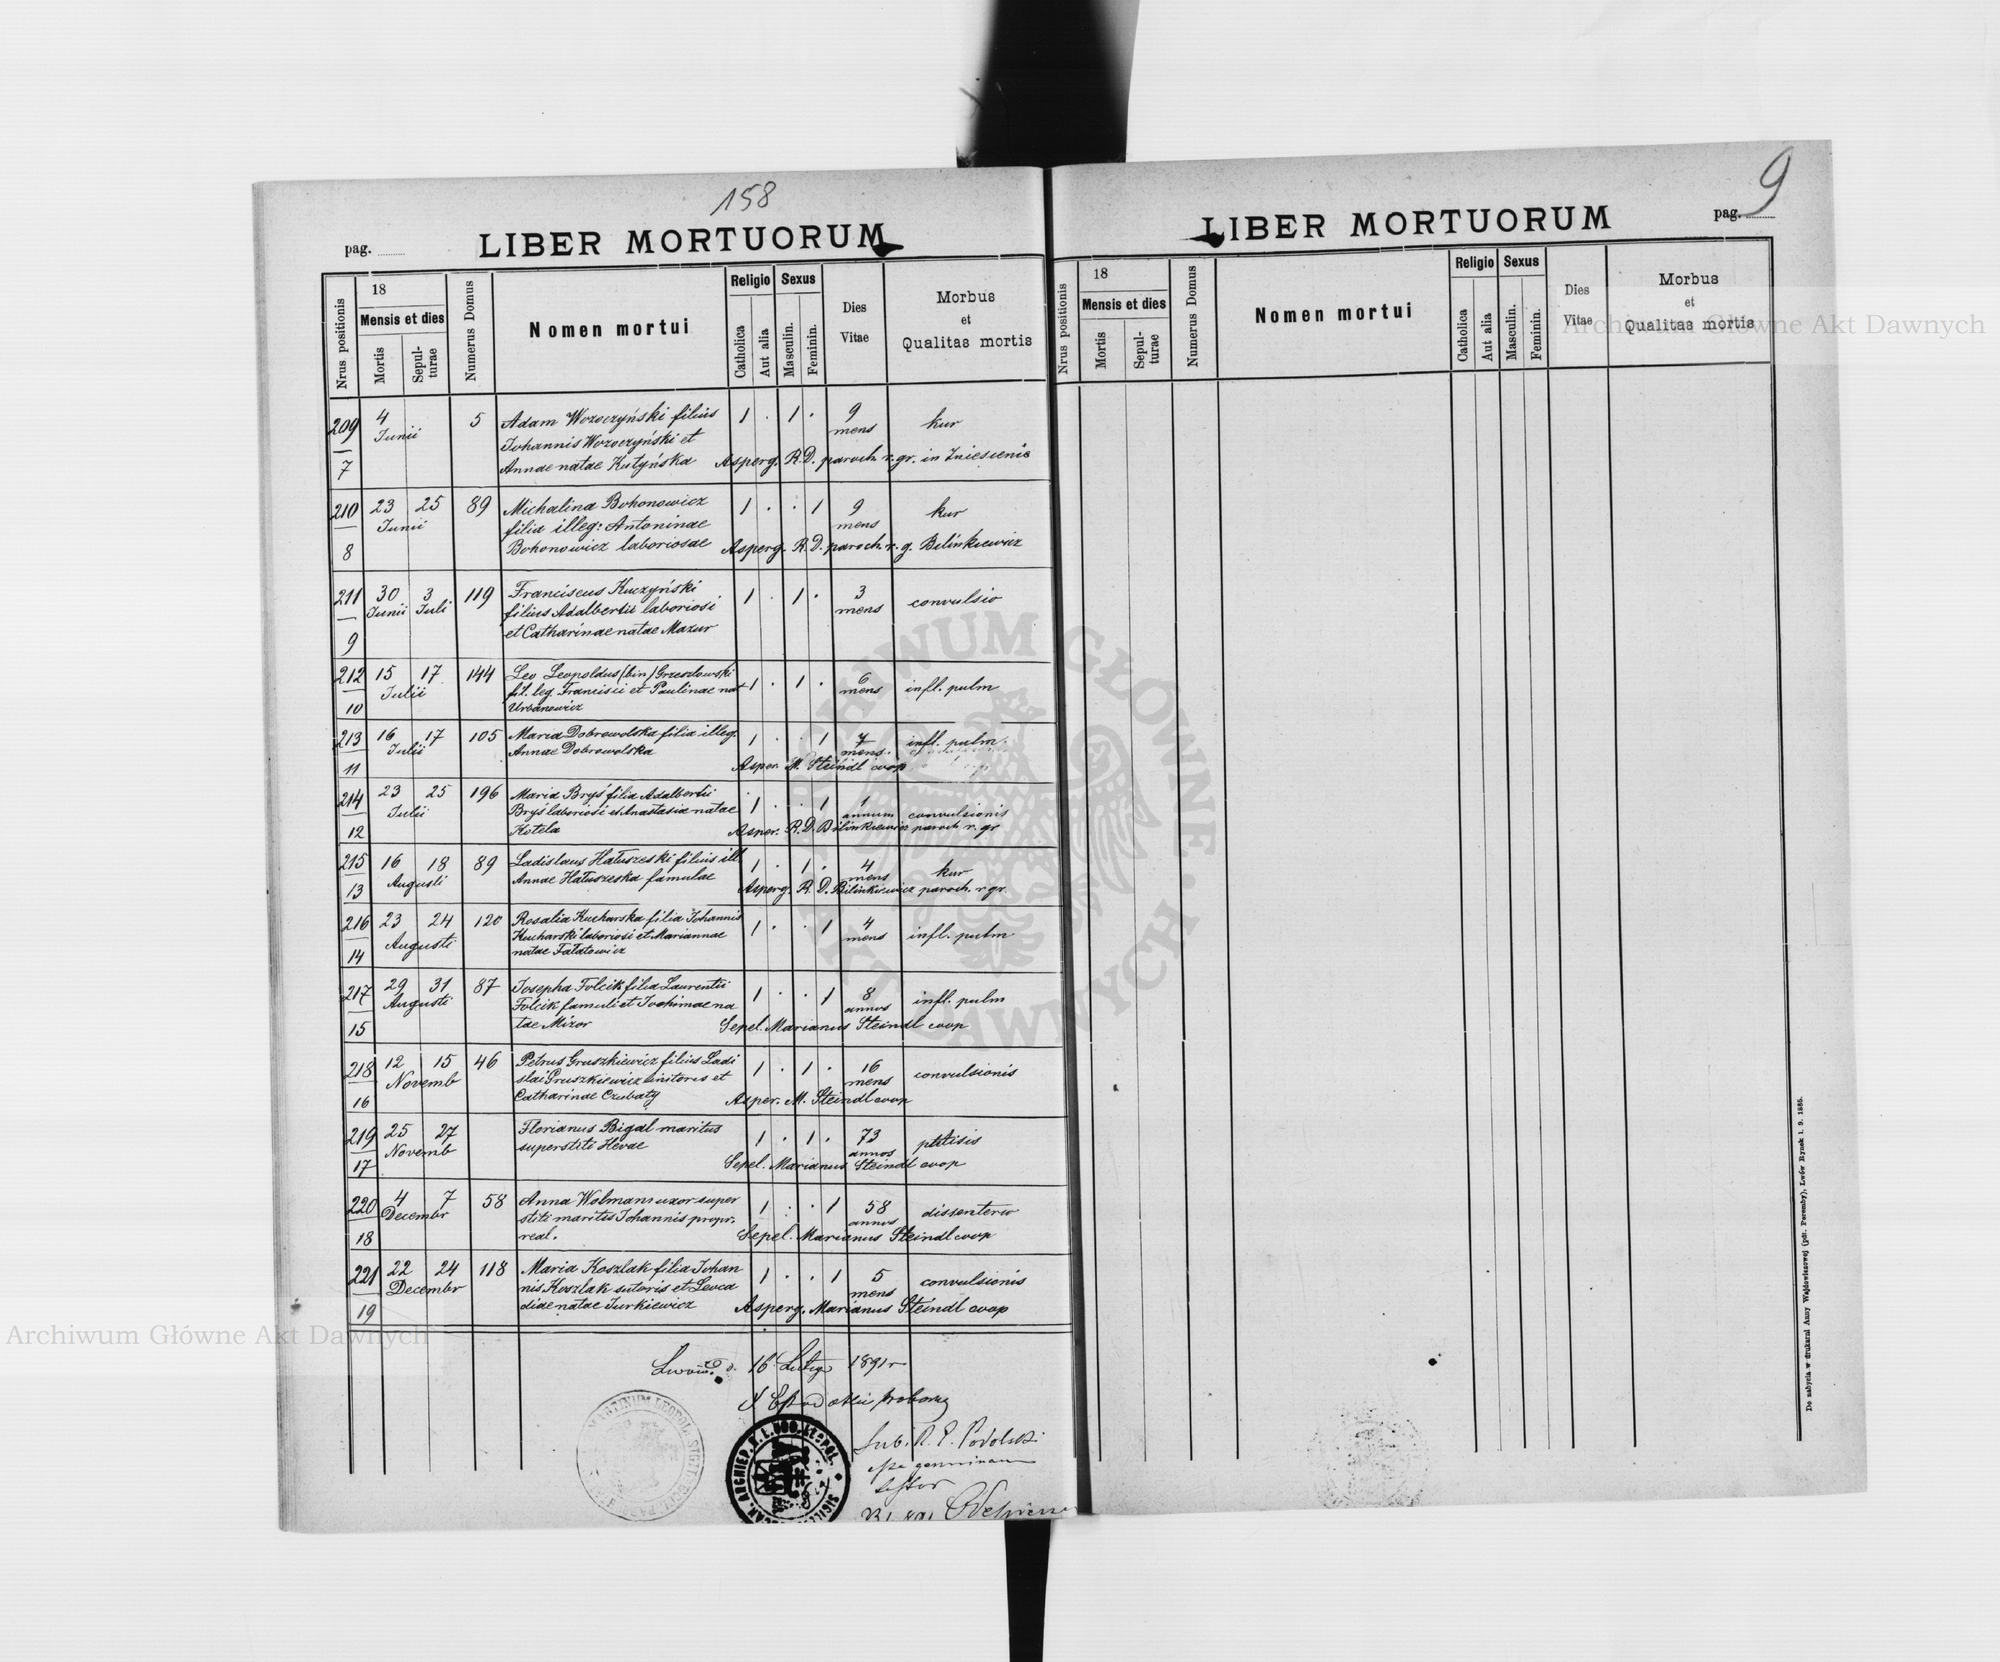 158
pag.
LIBER MORTUORUM
Nrus positionis
18
Mensis et dies
Mortis
Sepul-
turae
Numerus Domus
Nomen mortui
Religio
Catholica
Aut alia
Sexus
Masculin.
Feminin.
Dies
Vitae
Morbus
et
Qualitas mortis
209 4 5 Adam Woroczyński filius 1 . 1 . 9 kur
Junii Johannis Woroczyński et mens
7 Annae natae Kutyńska Asperg. R.D. paroch. r. gr. in Zniesienie
210 23 25 89 Michalina Bohonowicz 1 . . 1 9 kur
Junii filia illeg: Antoninae mens
8 Bohonowicz laboriosae Asperg. R.D. paroch. r. g. Bilinkiewicz
211 30 3 119 Franciscus Kuczyński 1 . 1 . 3 convulsio
Junii Juli filius Adalberti laboriosi mens
9 et Catharinae natae Mazur
212 15 17 144 Leo Leopoldus (bin) Grzeszlowski 1 . 1 . 6 infl. pulm
Julii fil. leg. Francisci et Paulinae nat mens
10 Urbanowicz
213 16 17 105 Maria Dobrowolska filia illeg. 1 . . 1 7 infl. pulm.
Julii Annae Dobrowolska mens.
11 Asper. M. Steindl coop
214 23 25 196 Maria Bryś filia Adalberti 1 . . 1 1 convulsionis
Julii Bryś laboriosi et Anastasia natae annum
12 Kotela Asper. R.D. Bilinkiewicz paroch r. gr
215 16 18 89 Ladislaus Hałuszeski filius ill. 1 . 1 . 4 kur
Augusti Annae Hałuszeska famulae mens
13 Asperg. R. D. Bilinkiewicz paroch. r gr.
216 23 24 120 Rosalia Kucharska filia Johannis 1 . . 1 4 infl. pulm
Augusti Kucharski laboriosi et Mariannae mens
14 natae Fałatowicz
217 29 31 87 Josepha Folcik filia Laurentii 1 . . 1 8 infl. pulm
Augusti Folcik famuli et Joohimae na annos
15 tae Mizor Sepel. Marianus Steindl coop
218 12 15 46 Petrus Gruszkiewicz filius Ladi 1 . 1 . 16 convulsionis
Novemb slai Gruszkiewicz institoris et mens
16 Catharinae Czubaty Asper. M. Steindl coop
219 25 27 Florianus Bigal maritus 1 . 1 . 73 phtisis
Novemb superstiti Hevae annos
17 Sepel. Marianus Steindl coop
220 4 7 58 Anna Wolman uxor super 1 . . 1 58 dissenteria
Decembr stiti mariti Johannis propr. annos
18 real. Sepel. Marianus Steindl coop
221 22 24 118 Maria Koszlak filia Johan 1 . . 1 5 convulsionis
Decembr nis Koszlak sutoris et Leoca mens
19 diae natae Jurkiewicz Asperg. Marianus Steindl coop
16 Lutego 1891 r
Podolski
pag. 9
LIBER MORTUORUM
Nrus positionis
18
Mensis et dies
Mortis
Sepul-
turae
Numerus Domus
Nomen mortui
Religio
Catholica
Aut alia
Sexus
Masculin.
Feminin.
Dies
Vitae
Morbus
et
Qualitas mortis
Do nabycia w drukarni Anny Wajdowiczowej (pdr. Peremby), Lwów Rynek l. 9. 1885.
Archiwum Główne Akt Dawnych
Archiwum Główne Akt Dawnych
ARCHIWUM GŁÓWNE AKT DAWNYCH